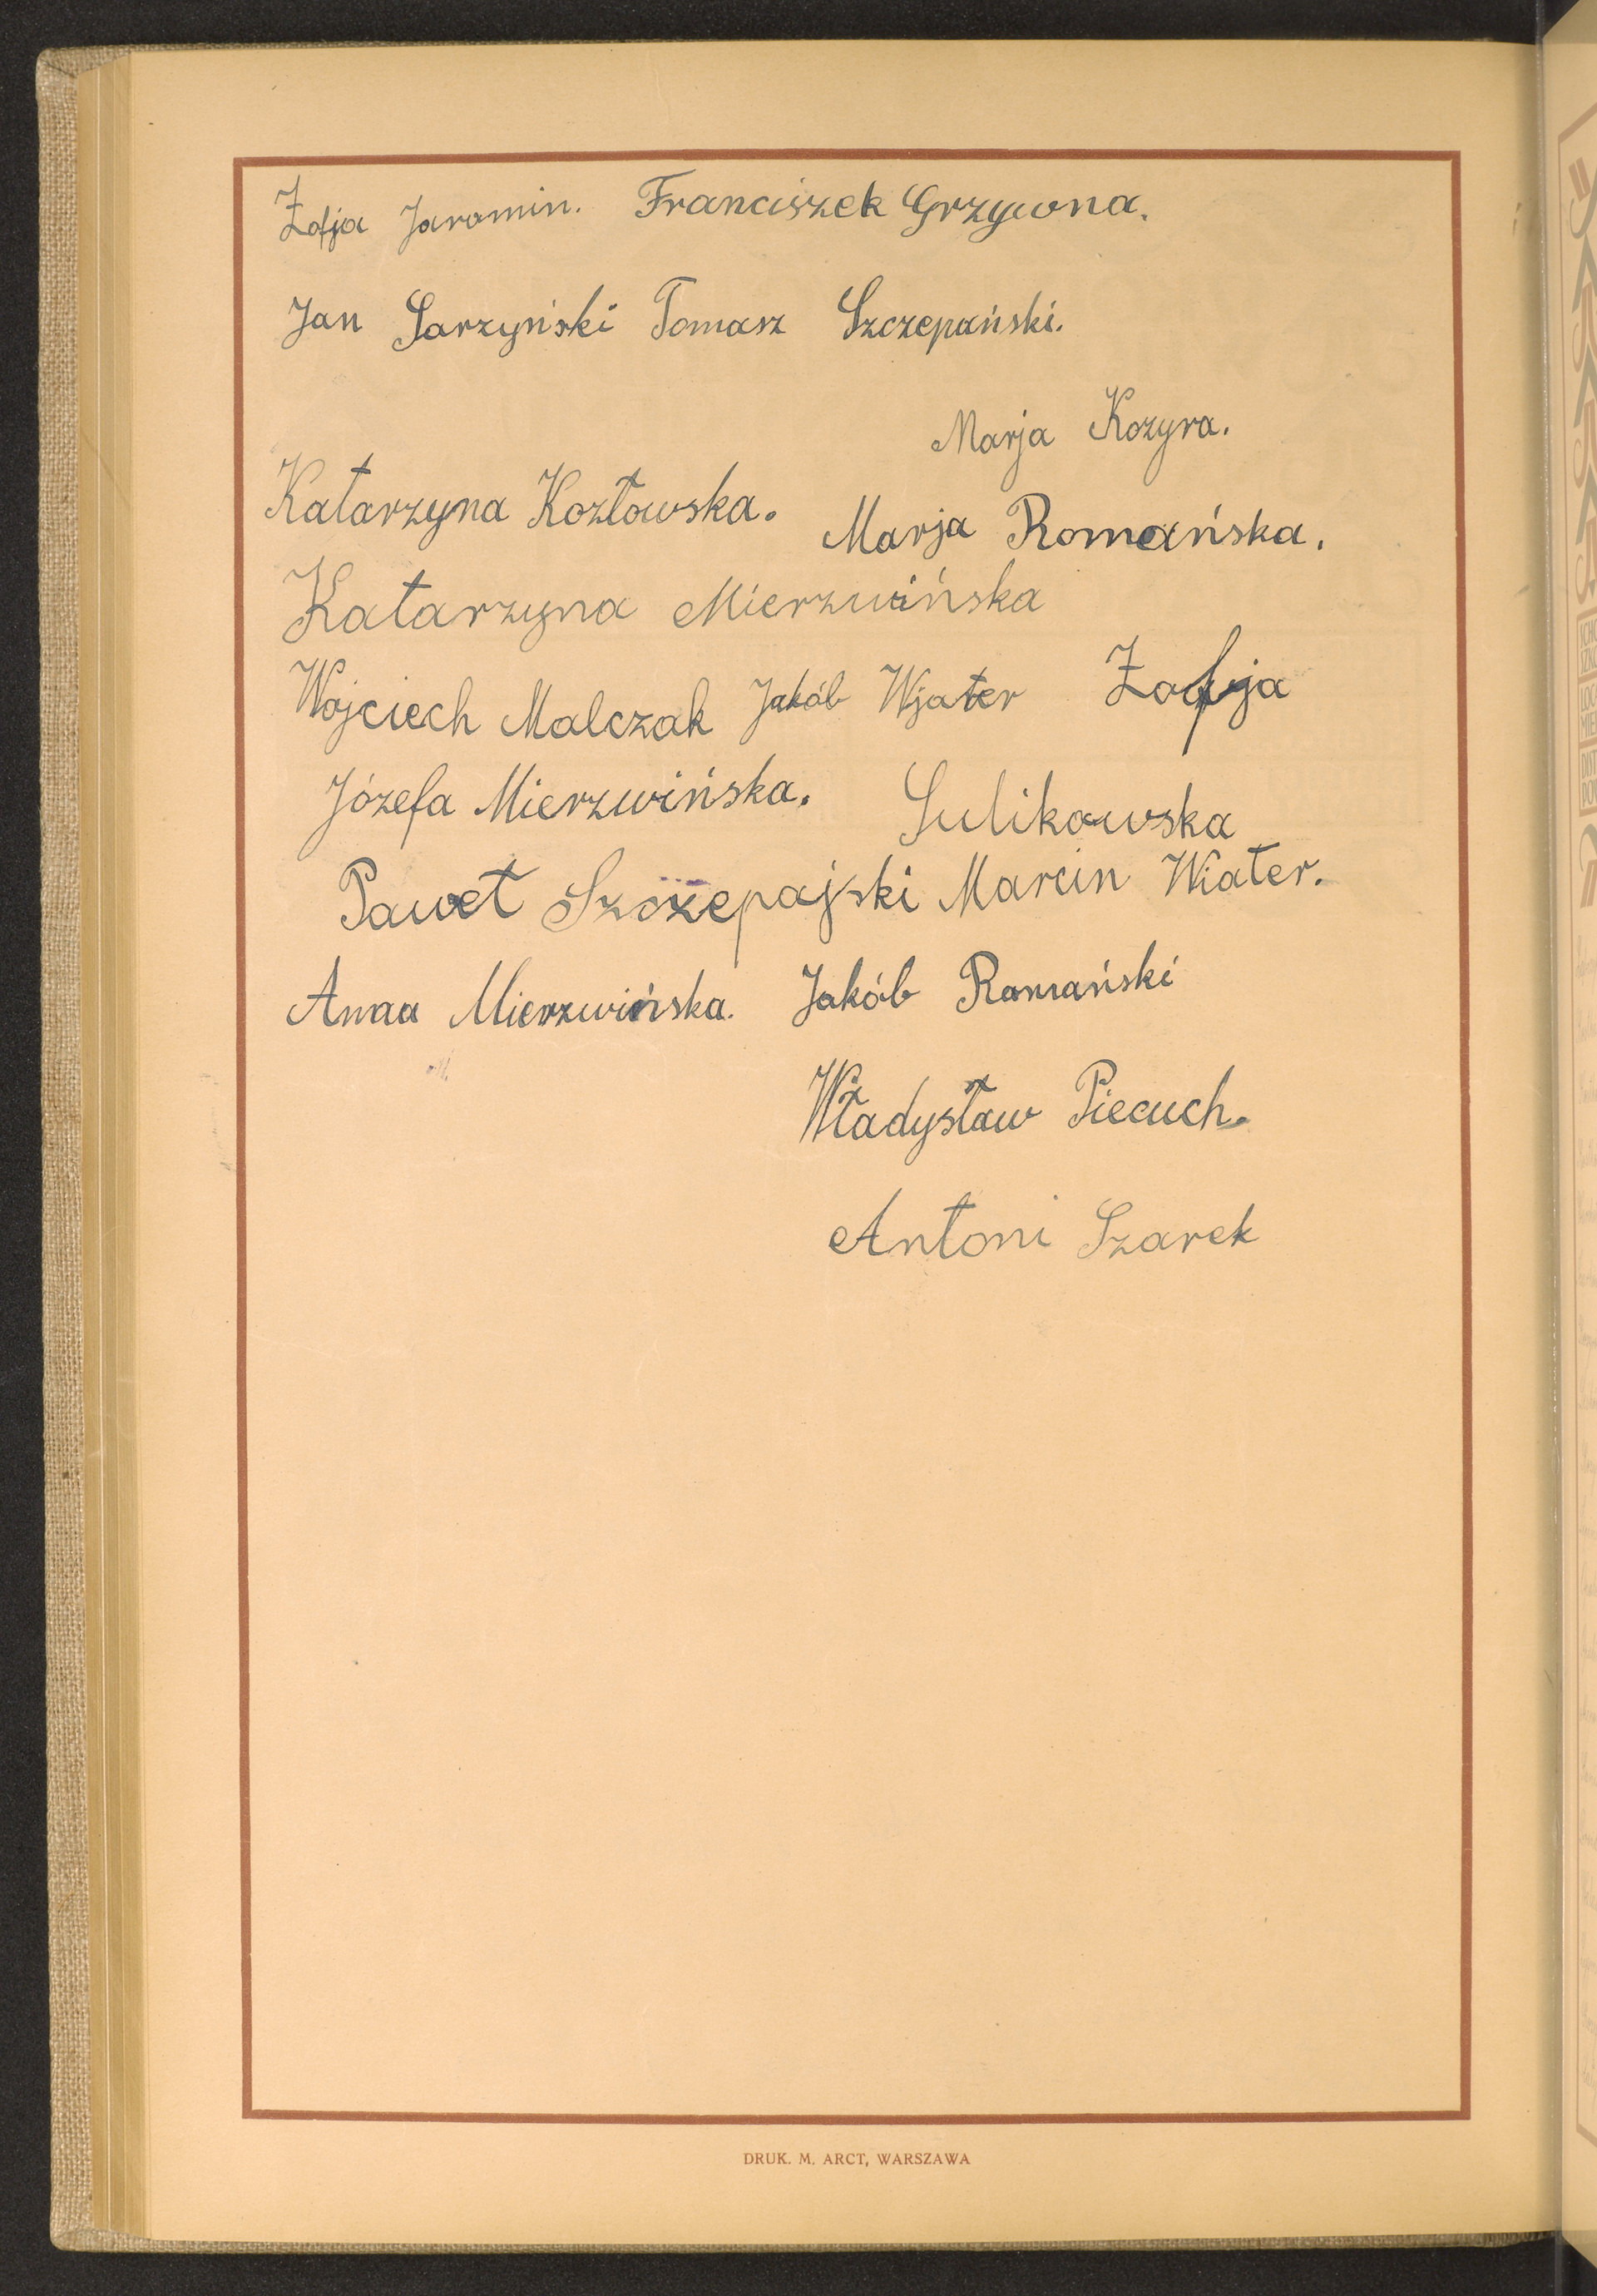 Zofja Jaromin. Franciszek Grzywna.
Jan Sarzyński Tomasz Szczepański.
Marja Kozyra.
Katarzyna Kozłowska. Marja Romańska.
Katarzyna Mierzwińska
Wojciech Malczak Jakób Wjater Zofja
Józefa Mierzwińska. Sulikowska
Paweł Szczepajski Marcin Wiater.
Anna Mierzwińska. Jakób Romański
Władysław Piecuch.
Antoni Szarek
DRUK. M. ARCT, WARSZAWA